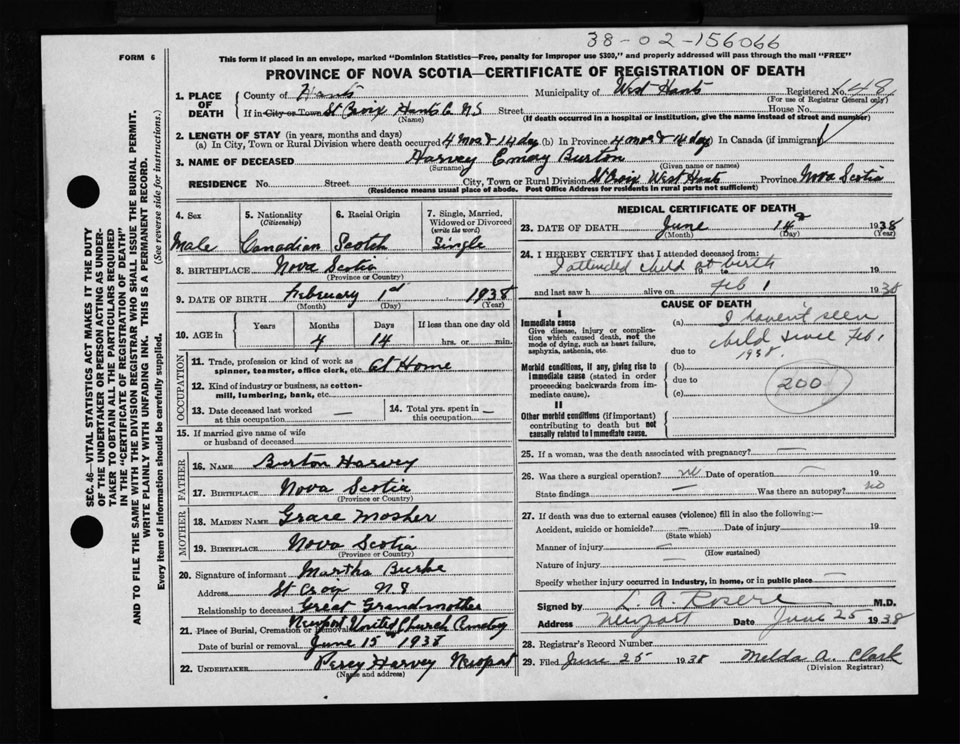 38-02-156066
FORM 6
This form if placed in an envelope, marked "Dominion Statistics—Free, penalty for improper use $300," and properly addressed will pass through the mail "FREE"
PROVINCE OF NOVA SCOTIA—CERTIFICATE OF REGISTRATION OF DEATH
1. PLACE OF DEATH
County of Hants Municipality of West Hants Registered No. 648
(For use of Registrar General only)
If in City or Town St Croix Hants Co N.S Street House No.
(Name) (If death occurred in a hospital or institution, give the name instead of street and number)
2. LENGTH OF STAY (in years, months and days)
(a) In City, Town or Rural Division where death occurred 4 mos & 14 day (b) In Province 4 mos & 14 day (c) In Canada (if immigrant)
3. NAME OF DECEASED Harvey Emory Burton
(Surname) (Given name or names)
RESIDENCE No. Street City, Town or Rural Division St Croix West Hants Province Nova Scotia
(Residence means usual place of abode. Post Office Address for residents in rural parts not sufficient)
4. Sex
Male
5. Nationality
(Citizenship)
Canadian
6. Racial Origin
Scotch
7. Single, Married, Widowed or Divorced
(write the word)
Single
8. BIRTHPLACE Nova Scotia
(Province or Country)
9. DATE OF BIRTH February 1st 1938
(Month) (Day) (Year)
10. AGE in
Years Months Days If less than one day old
4 14 hrs. or min.
OCCUPATION
11. Trade, profession or kind of work as spinner, teamster, office clerk, etc. At Home
12. Kind of industry or business, as cotton-mill, lumbering, bank, etc.
13. Date deceased last worked at this occupation —
14. Total yrs. spent in this occupation —
15. If married give name of wife or husband of deceased
FATHER
16. NAME Burton Harvey
17. BIRTHPLACE Nova Scotia
(Province or Country)
MOTHER
18. MAIDEN NAME Grace Mosher
19. BIRTHPLACE Nova Scotia
(Province or Country)
20. Signature of informant Martha Burke
Address St Croix N S
Relationship to deceased Great Grandmother
21. Place of Burial, Cremation or Removal Newport United Church
Date of burial or removal June 15th 1938
22. UNDERTAKER Percy Harvey Newport
(Name and address)
MEDICAL CERTIFICATE OF DEATH
23. DATE OF DEATH June 14 1938
(Month) (Day) (Year)
24. I HEREBY CERTIFY that I attended deceased from:
I attended child at birth 19
and last saw h alive on Feb 1 1938
CAUSE OF DEATH
I
Immediate cause
Give disease, injury or complication which caused death, not the mode of dying, such as heart failure, asphyxia, asthenia, etc.
(a) I haven't seen
child since Feb 1
due to 1938.
Morbid conditions, if any, giving rise to immediate cause (stated in order proceeding backwards from immediate cause).
(b)
due to
(c)
200
II
Other morbid conditions (if important) contributing to death but not causally related to immediate cause.
25. If a woman, was the death associated with pregnancy? —
26. Was there a surgical operation? no Date of operation — 19
State findings — Was there an autopsy? no
27. If death was due to external causes (violence) fill in also the following:—
Accident, suicide or homicide? — Date of injury 19
(State which)
Manner of injury —
(How sustained)
Nature of injury —
Specify whether injury occurred in industry, in home, or in public place —
Signed by L. A. Rosere M.D.
Address Newport Date June 25 1938
28. Registrar's Record Number
29. Filed June 25 1938 Melda A. Clark
(Division Registrar)
SEC. 46—VITAL STATISTICS ACT MAKES IT THE DUTY
OF THE UNDERTAKER OR PERSON ACTING AS UNDER-
TAKER TO OBTAIN ALL THE PARTICULARS REQUIRED
IN THE "CERTIFICATE OF REGISTRATION OF DEATH"
AND TO FILE THE SAME WITH THE DIVISION REGISTRAR WHO SHALL ISSUE THE BURIAL PERMIT.
WRITE PLAINLY WITH UNFADING INK. THIS IS A PERMANENT RECORD.
Every item of information should be carefully supplied. (See reverse side for instructions.)